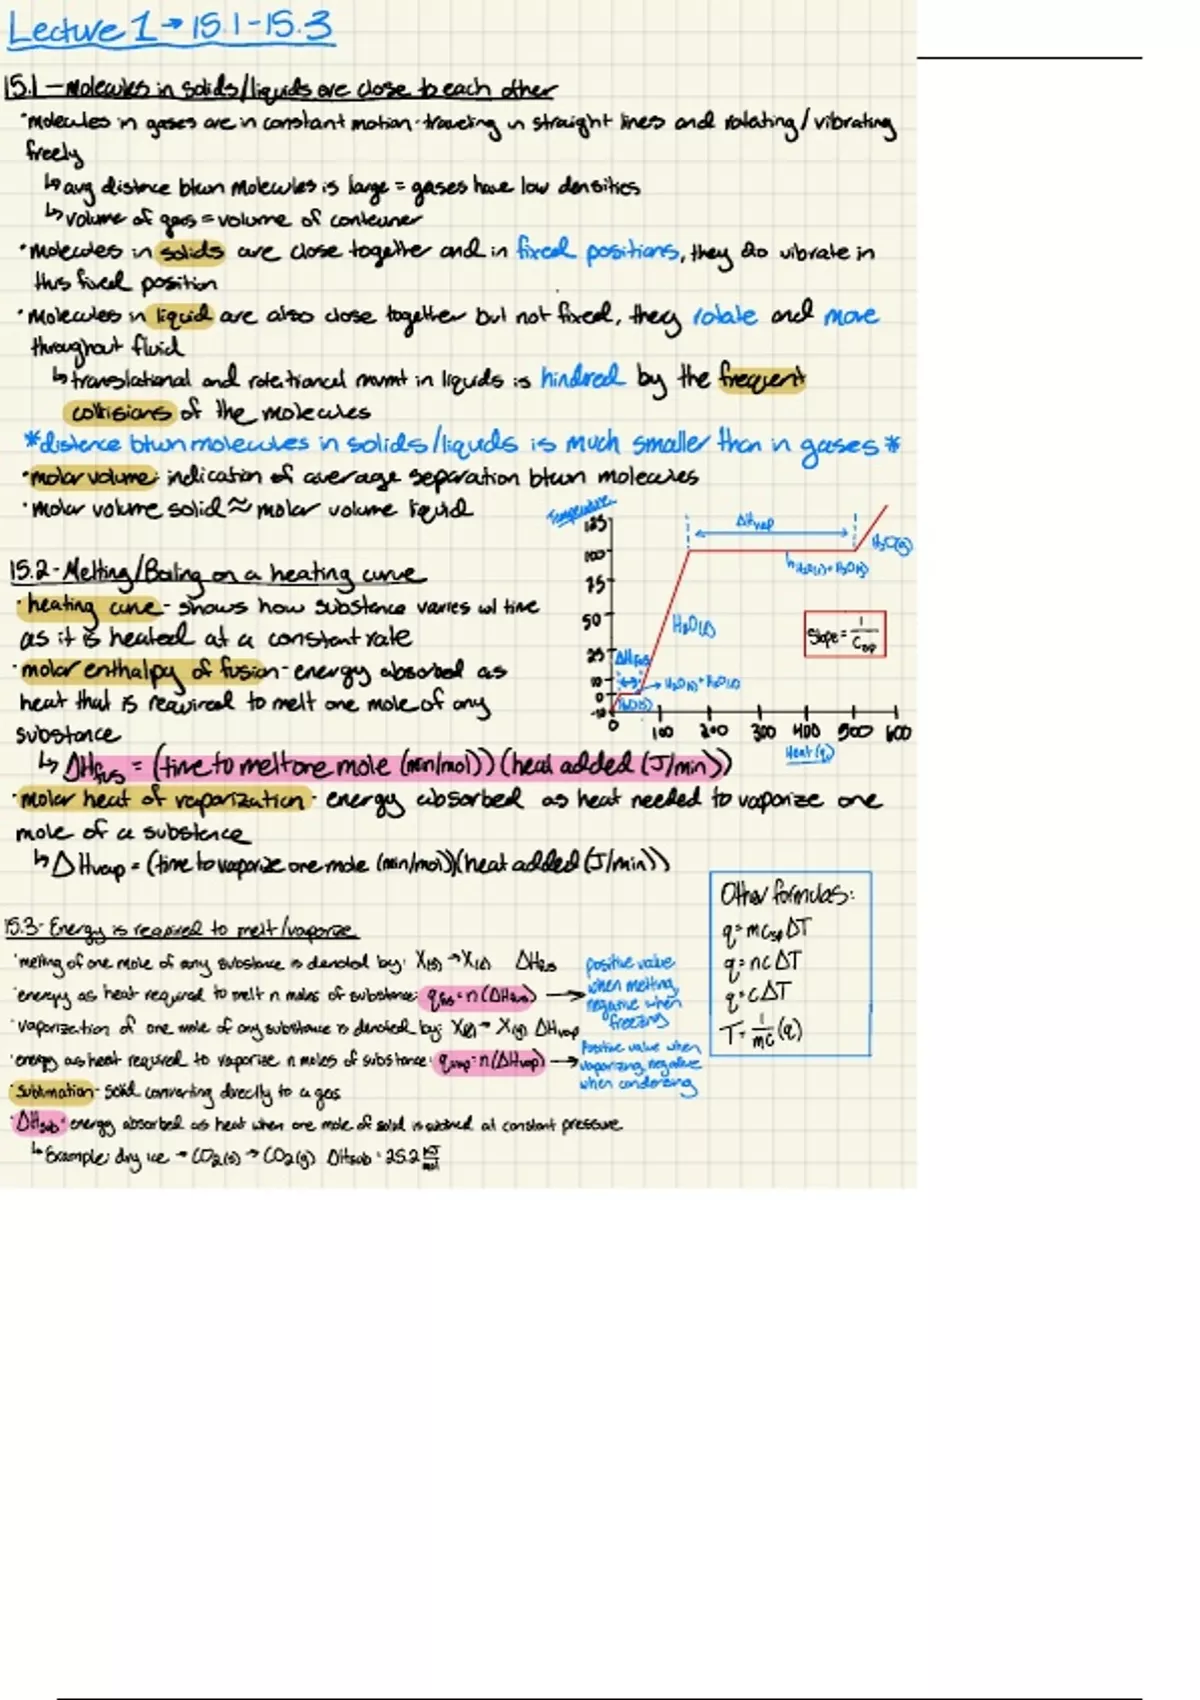 Lecture 1 → 15.1-15.3
15.1 - Molecules in solids/liquids are close to each other
• molecules in gases are in constant motion - traveling in straight lines and rotating/vibrating
freely
↳ avg distance btwn molecules is large = gases have low densities
↳ volume of gas = volume of container
• molecules in solids are close together and in fixed positions, they do vibrate in
this fixed position
• molecules in liquid are also close together but not fixed, they rotate and move
throughout fluid
↳ translational and rotational mvmt in liquids is hindred by the frequent
collisions of the molecules
*distance btwn molecules in solids/liquids is much smaller than in gases*
• molar volume: indication of average separation btwn molecules
• molar volume solid ≈ molar volume liquid
Temperature
125
100
75
50
25
10
0
-10
0 100 200 300 400 500 600
Heat (q)
ΔHvap
H₂O(g)
H₂O(l) + H₂O(g)
H₂O(l)
ΔHfus
H₂O(s) + H₂O(l)
H₂O(s)
Slope = 1/Csp
15.2 - Melting/Boiling on a heating curve
• heating curve - shows how substance varies w/ time
as it is heated at a constant rate
• molar enthalpy of fusion - energy absorbed as
heat that is required to melt one mole of any
substance
↳ ΔHfus = (time to melt one mole (min/mol))(heat added (J/min))
• molar heat of vaporization - energy absorbed as heat needed to vaporize one
mole of a substance
↳ ΔHvap = (time to vaporize one mole (min/mol))(heat added (J/min))
15.3 - Energy is required to melt/vaporize
• melting of one mole of any substance is denoted by: X(s) → X(l) ΔHfus
• energy as heat required to melt n moles of substance: qfus = n(ΔHfus) →
positive value
when melting,
negative when
freezing
• vaporization of one mole of any substance is denoted by: X(l) → X(g) ΔHvap
• energy as heat required to vaporize n moles of substance: qvap = n(ΔHvap) →
Positive value when
vaporizing, negative
when condensing
• Sublimation - solid converting directly to a gas
• ΔHsub: energy absorbed as heat when one mole of solid is at constant pressure
↳ Example: dry ice → CO2(s) → CO2(g) ΔHsub = 25.2 kJ/mol
Other formulas:
q = mCspΔT
q = ncΔT
q = cΔT
T = 1/mc (q)